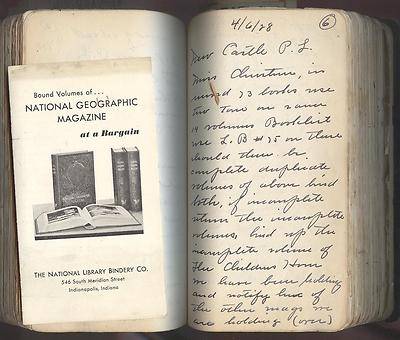 Bound Volumes of...
NATIONAL GEOGRAPHIC
MAGAZINE
at a Bargain
THE NATIONAL LIBRARY BINDERY CO.
546 South Meridian Street
Indianapolis, Indiana
4/6/28
6
New Castle P. L.
Miss Christine, in
73 books use
two tone on same
14 volumes Booklist
use L. B # 25 on these
should there be
complete duplicate
volumes of above bind
both, if incomplete
return the incomplete
volumes, bind up the
incomplete volume of
The Childrens Hour
we have been holding
and notify line of
the other mags we
are holding (over)